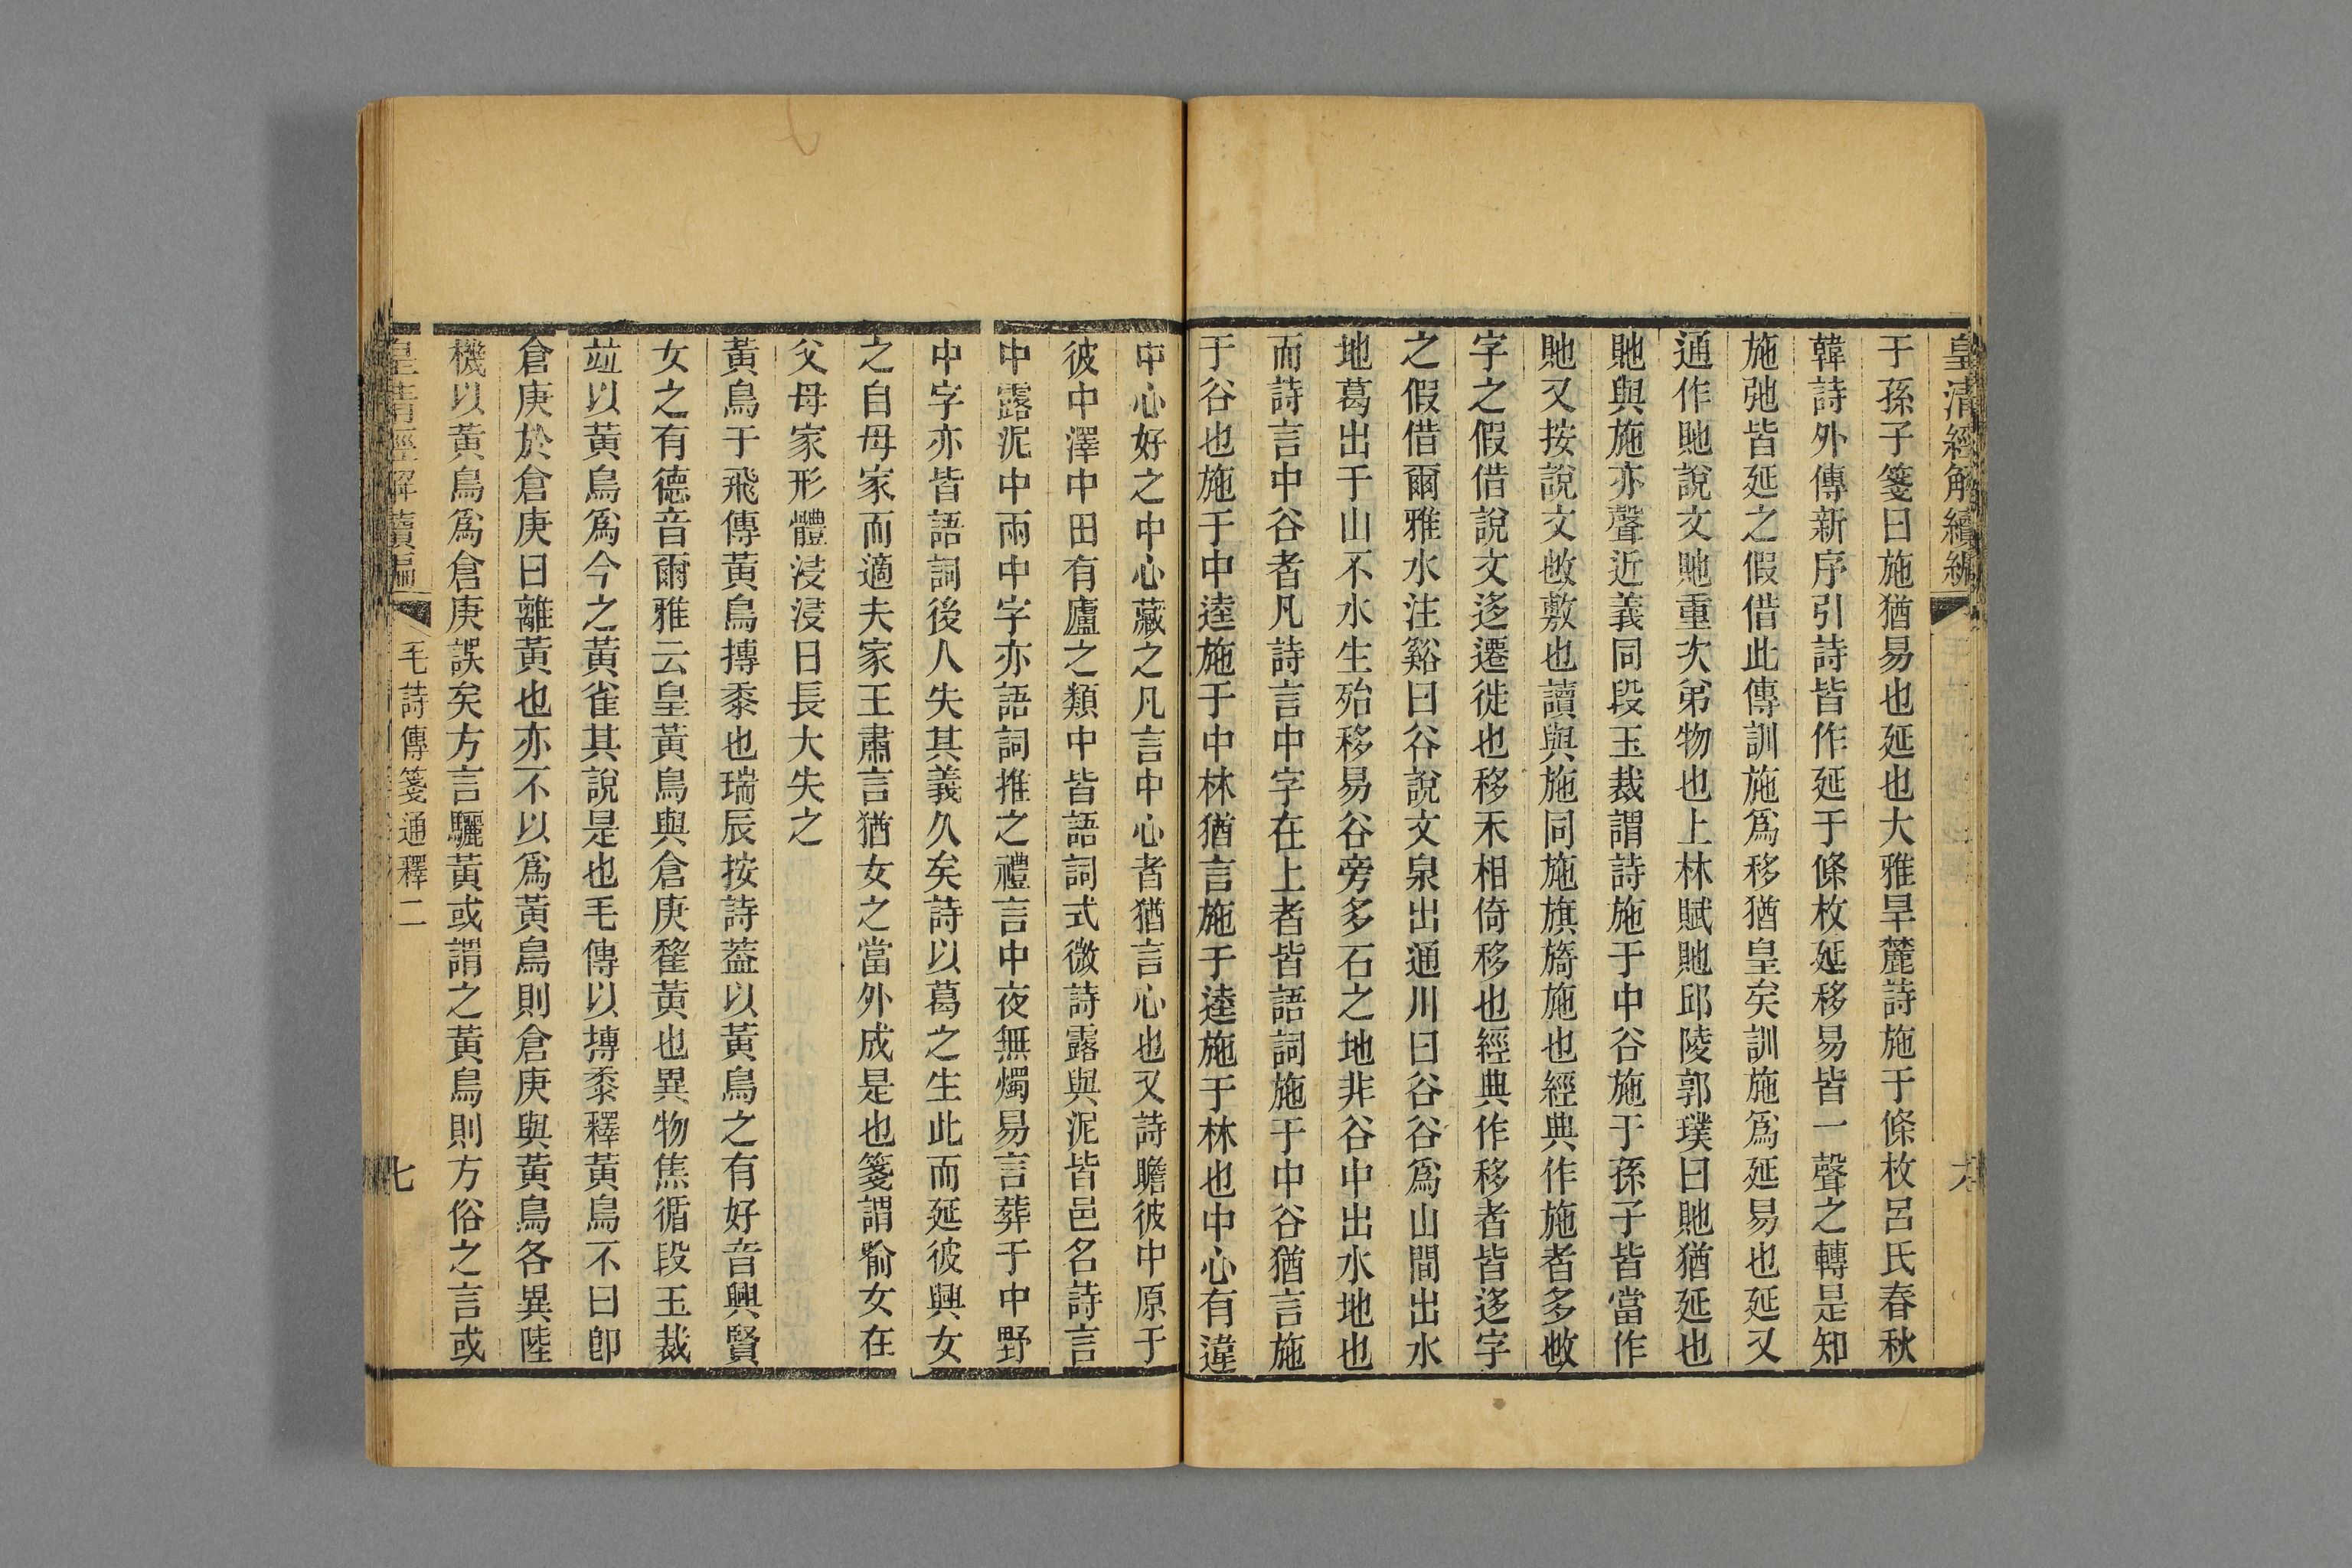 皇清經解續編
于孫子箋曰施猶易也延也大雅旱麓詩施于條枚呂氏春秋
韓詩外傳新序引詩皆作延于條枚延移易皆一聲之轉是知
施弛皆延之假借此傳訓施爲移猶皇矣訓施爲延易也延又
通作貤說文貤重次弟物也上林賦貤邱陵郭璞曰貤猶延也
貤與施亦聲近義同段玉裁謂詩施于中谷施于孫子皆當作
貤又按說文㪃敷也讀與施同施旗旖施也經典作施者多㪃
字之假借說文迻遷徙也移禾相倚移也經典作移者皆迻字
之假借爾雅水注谿曰谷說文泉出通川曰谷谷爲山間出水
地葛出于山不水生殆移易谷旁多石之地非谷中出水地也
而詩言中谷者凡詩言中字在上者皆語詞施于中谷猶言施
于谷也施于中逵施于中林猶言施于逵施于林也中心有違
中心好之中心藏之凡言中心者猶言心也又詩瞻彼中原于
彼中澤中田有廬之類中皆語詞式微詩露與泥皆邑名詩言
中露泥中兩中字亦語詞推之禮言中夜無燭易言葬于中野
中字亦皆語詞後人失其義久矣詩以葛之生此而延彼興女
之自母家而適夫家王肅言猶女之當外成是也箋謂喻女在
父母家形體浸浸日長大失之
黃鳥于飛傳黃鳥摶黍也瑞辰按詩葢以黃鳥之有好音興賢
女之有德音爾雅云皇黃鳥與倉庚鵹黃也異物焦循段玉裁
竝以黃鳥爲今之黃雀其說是也毛傳以摶黍釋黃鳥不曰卽
倉庚於倉庚曰離黃也亦不以爲黃鳥則倉庚與黃鳥各異陸
機以黃鳥爲倉庚誤矣方言驪黃或謂之黃鳥則方俗之言或
皇清經解續編
毛詩傳箋通釋二
七